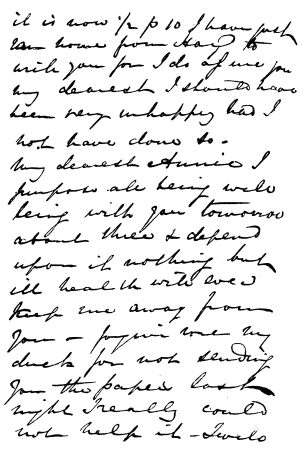 it is now ½ p 10 I have just
ran home from Harry to
with you for I do af me you
my dearest I should have
been very unhappy had I
not have done so -
My dearest Annie I
purpose all being well
being with you tomorrow
about three & depend
upon it nothing but
ill health will ever
keep me away from
you - forgive me my
duck for not sending
you the paper last
night I really could
not help it - I will